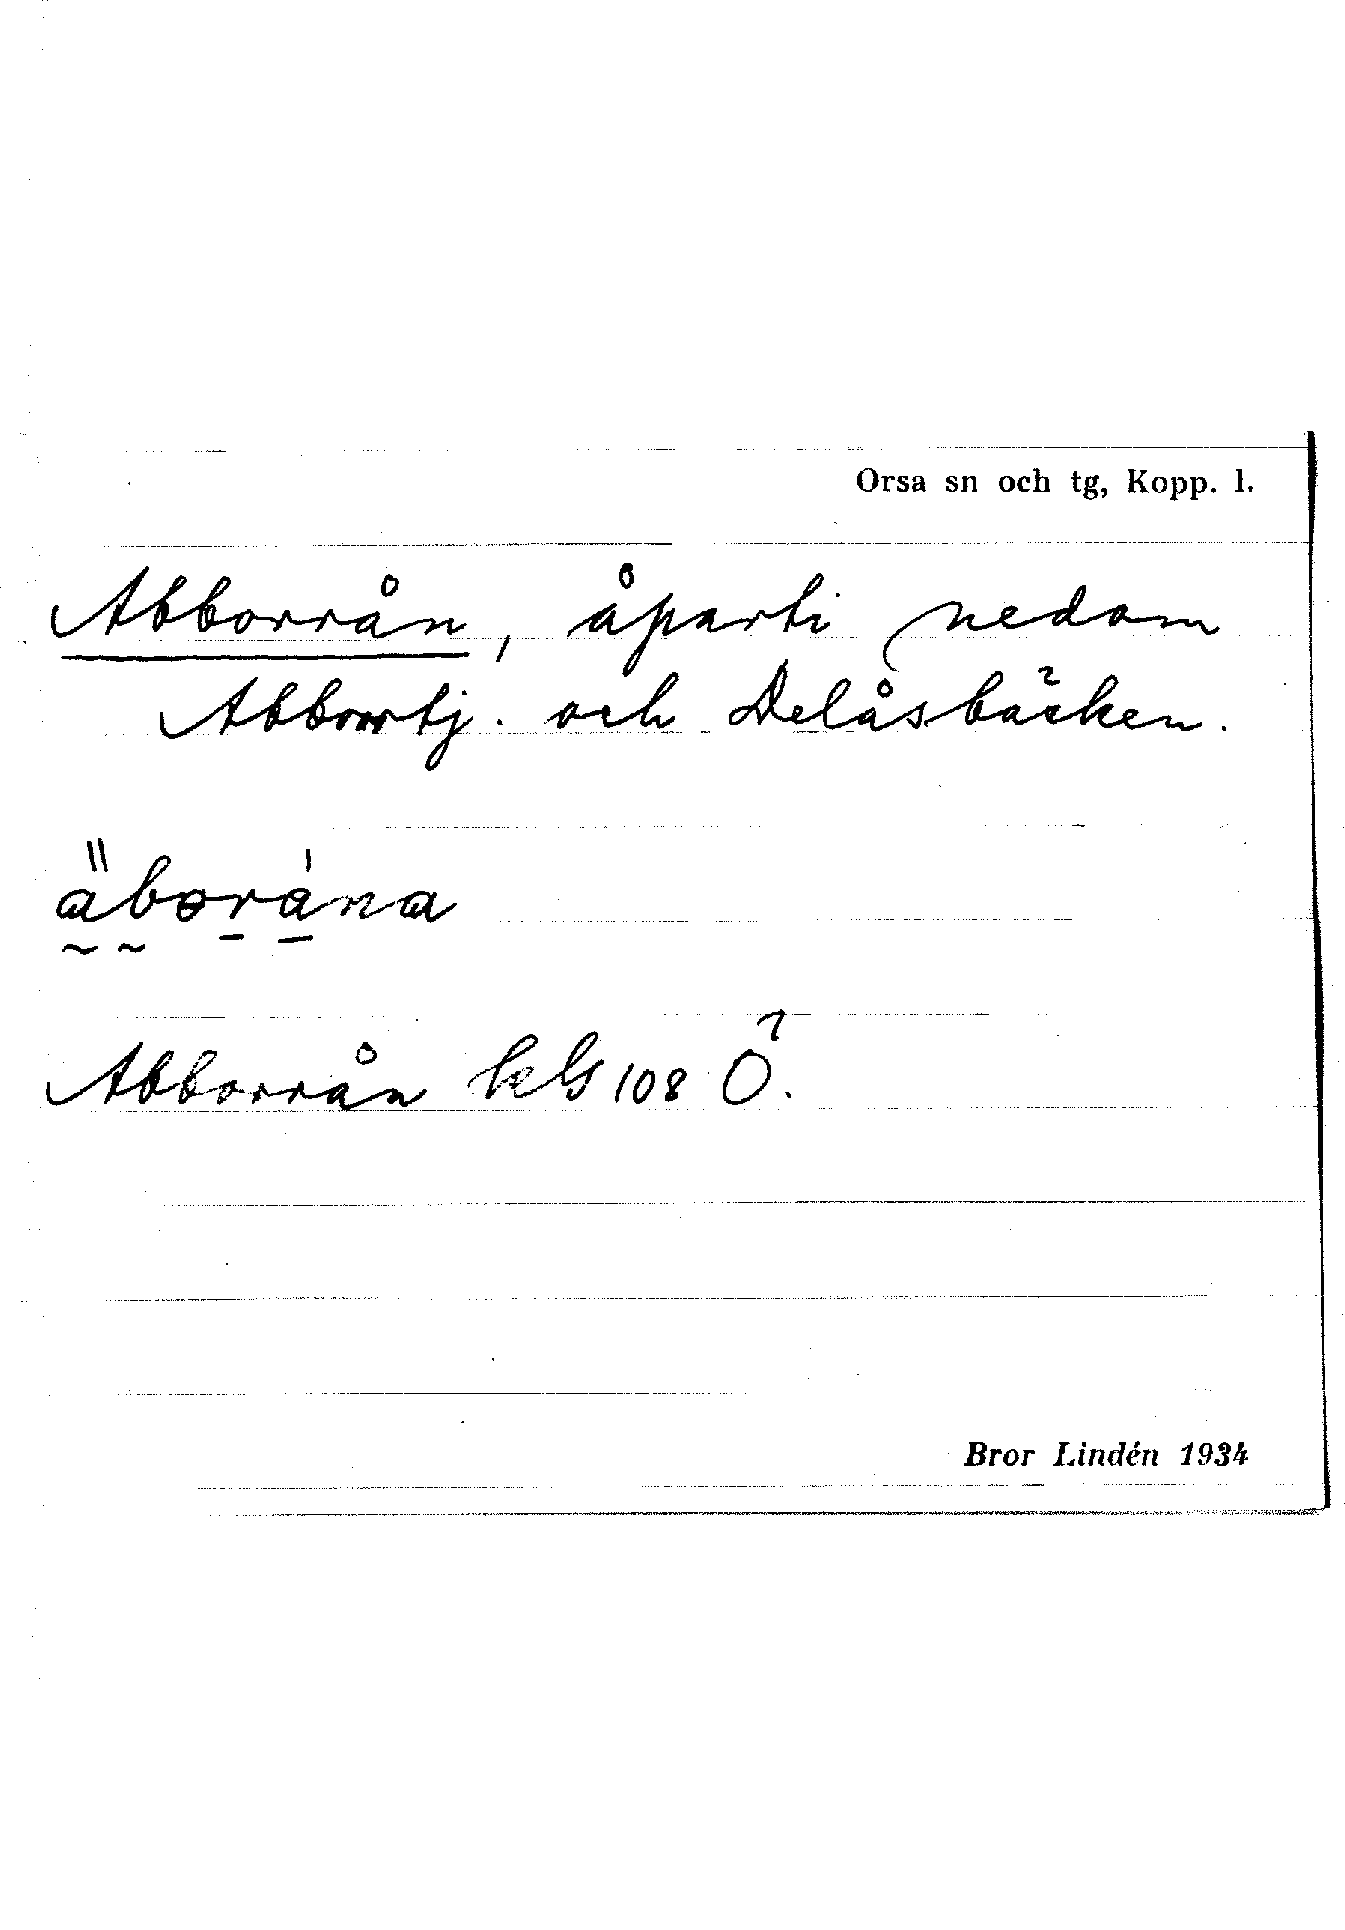 Orsa sn och tg, Kopp. l.
Abborrån, åparti nedom
Abborrtj. och Delåsbäcken.
äboråna
Abborrån kbs 108 Ö.
Bror Lindén 1934